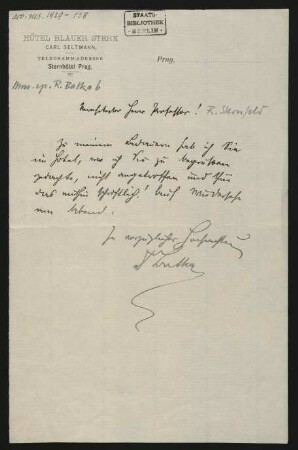 acc. ms. 1929-138
STAATS-
BIBLIOTHEK
• BERLIN •
HÔTEL BLAUER STERN
CARL SELTMANN,
TELEGRAMM-ADRESSE
Sternhôtel Prag.
Prag,
Mus. ep. R. Batka 6
Verehrtester Herr Professor! R. Sternfeld
Zu meinem Bedauern hab ich Sie
im Hotel, wo ich Sie zu begrüßen
gedachte, nicht angetroffen und thue
das mithin schriftlich! Auf Wiedersehn
am Abend.
In vorzüglicher Hochachtung
R Batka